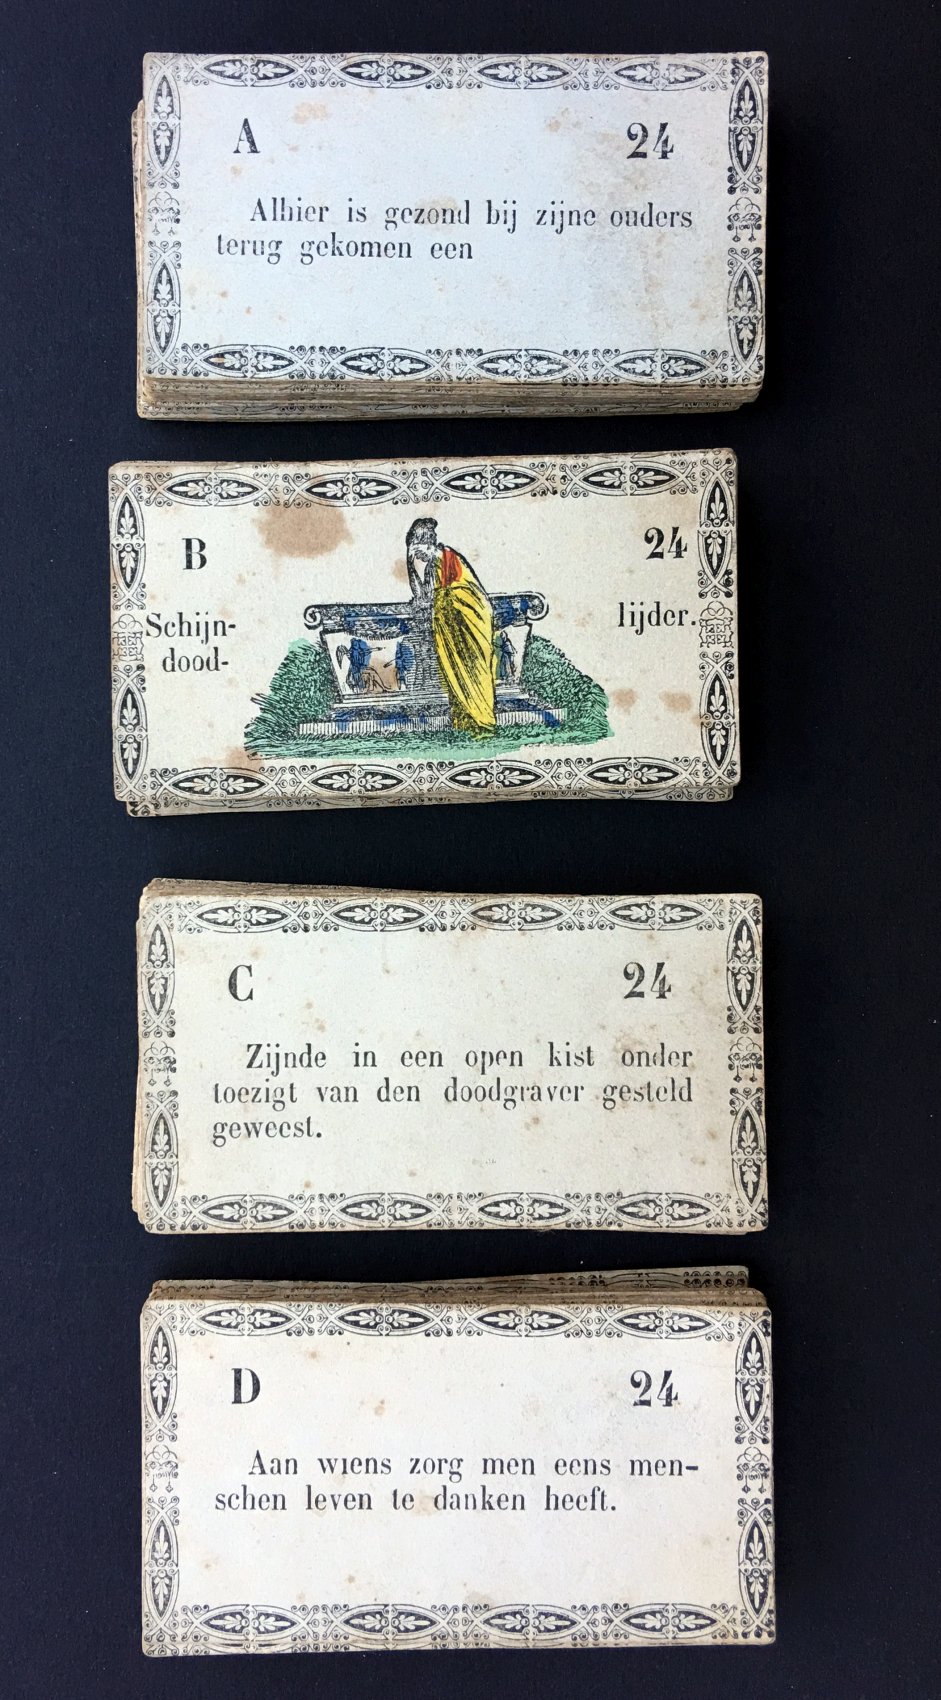 A 24
Alhier is gezond bij zijne ouders
terug gekomen een
B 24
Schijn- lijder.
dood-
C 24
Zijnde in een open kist onder
toezigt van den doodgraver gesteld
geweest.
D 24
Aan wiens zorg men eens men-
schen leven te danken heeft.